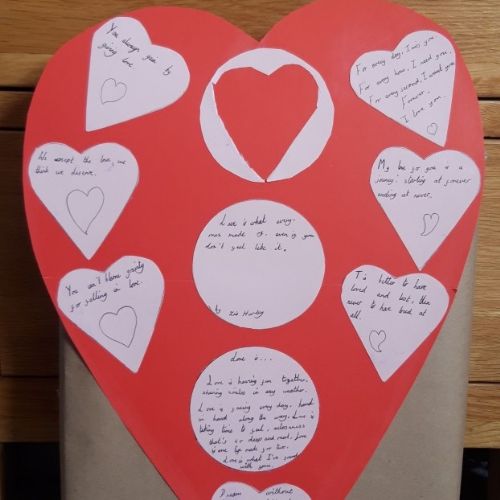 You always gain by
giving love.
For every day, I miss you.
For every hour, I need you.
For every second, I want you.
Forever.
I love you.
We accept the love, we
think we deserve.
My love for you is a
journey: starting at forever
ending at never.
Love is what every-
one made of. even if you
don't feel like it.
by
You can't blame gravity
for falling in love.
Tis better to have
loved and lost, then
never to have loved at
all.
Love is...
Love is having fun together,
sharing smiles in any weather.
Love is growing every day, hand
in hand along the way. Love is
taking time to
that's so deep and real. Love
is one made for two.
Love is what I've found
with you.
Dream without